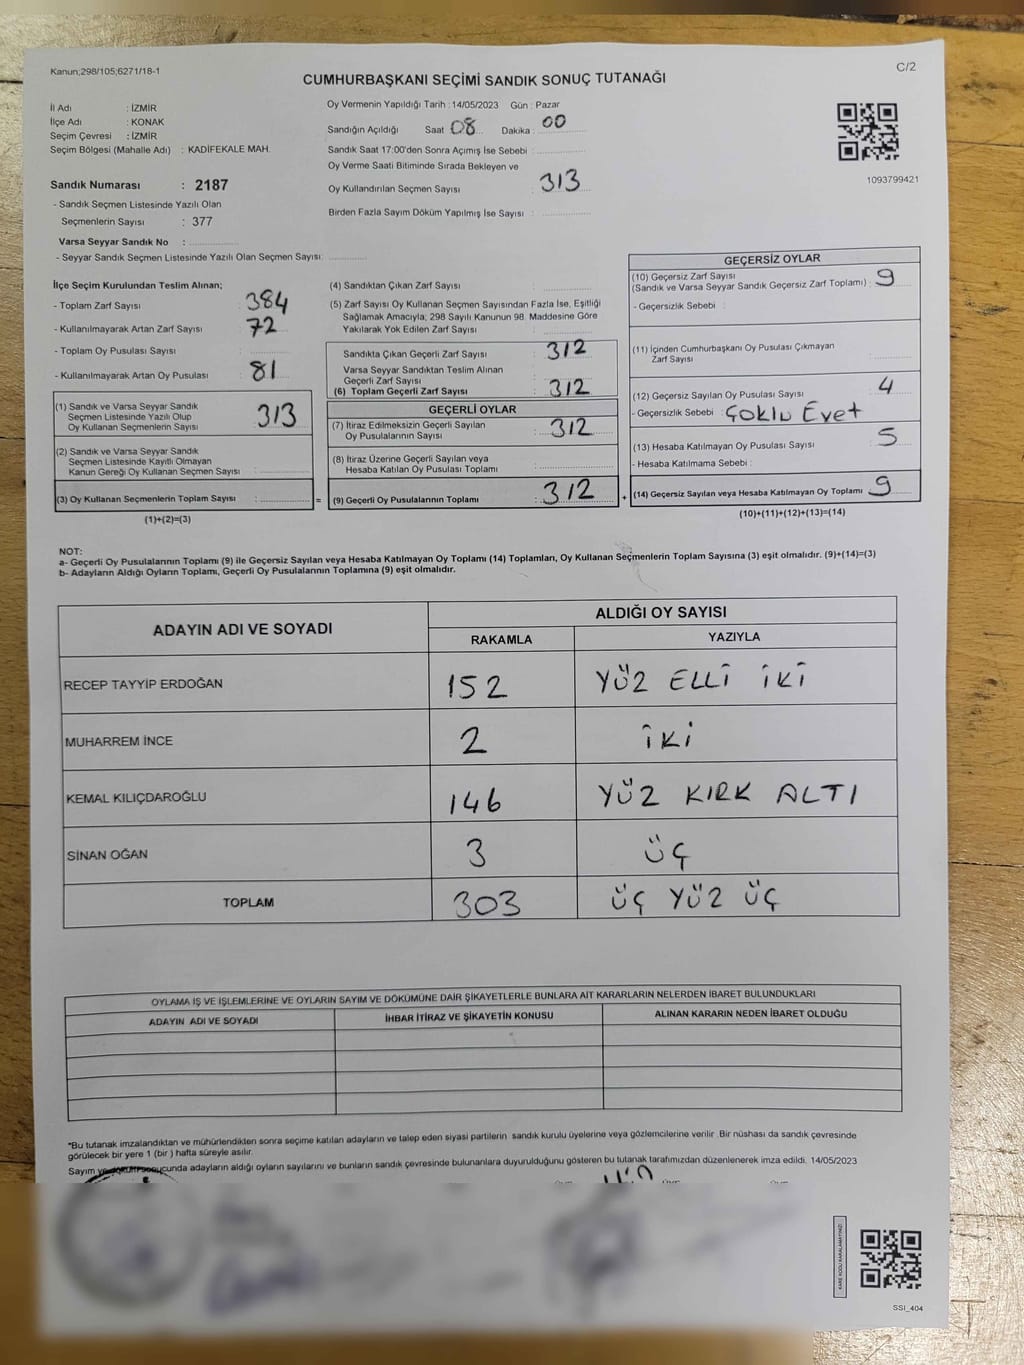 Kanun;298/105;6271/18-1
C/2
CUMHURBAŞKANI SEÇİMİ SANDIK SONUÇ TUTANAĞI
İl Adı : İZMİR
İlçe Adı : KONAK
Seçim Çevresi : İZMİR
Seçim Bölgesi (Mahalle Adı) : KADİFEKALE MAH.
Sandık Numarası : 2187
- Sandık Seçmen Listesinde Yazılı Olan
Seçmenlerin Sayısı : 377
Varsa Seyyar Sandık No :
- Seyyar Sandık Seçmen Listesinde Yazılı Olan Seçmen Sayısı:
Oy Vermenin Yapıldığı Tarih : 14/05/2023 Gün : Pazar
Sandığın Açıldığı Saat 08 Dakika : 00
Sandık Saat 17:00'den Sonra Açımış İse Sebebi :
Oy Verme Saati Bitiminde Sırada Bekleyen ve
Oy Kullandırılan Seçmen Sayısı : 313
Birden Fazla Sayım Döküm Yapılmış İse Sayısı :
1093799421
İlçe Seçim Kurulundan Teslim Alınan;
- Toplam Zarf Sayısı : 384
- Kullanılmayarak Artan Zarf Sayısı : 72
- Toplam Oy Pusulası Sayısı :
- Kullanılmayarak Artan Oy Pusulası : 81
(1) Sandık ve Varsa Seyyar Sandık
Seçmen Listesinde Yazılı Olup
Oy Kullanan Seçmenlerin Sayısı : 313
(2) Sandık ve Varsa Seyyar Sandık
Seçmen Listesinde Kayıtlı Olmayan
Kanun Gereği Oy Kullanan Seçmen Sayısı :
(3) Oy Kullanan Seçmenlerin Toplam Sayısı : =
(1)+(2)=(3)
(4) Sandıktan Çıkan Zarf Sayısı :
(5) Zarf Sayısı Oy Kullanan Seçmen Sayısından Fazla İse, Eşitliği
Sağlamak Amacıyla; 298 Sayılı Kanunun 98. Maddesine Göre
Yakılarak Yok Edilen Zarf Sayısı :
Sandıkta Çıkan Geçerli Zarf Sayısı : 312
Varsa Seyyar Sandıktan Teslim Alınan
Geçerli Zarf Sayısı :
(6) Toplam Geçerli Zarf Sayısı : 312
GEÇERLİ OYLAR
(7) İtiraz Edilmeksizin Geçerli Sayılan
Oy Pusulalarının Sayısı : 312
(8) İtiraz Üzerine Geçerli Sayılan veya
Hesaba Katılan Oy Pusulası Toplamı :
(9) Geçerli Oy Pusulalarının Toplamı : 312 +
GEÇERSİZ OYLAR
(10) Geçersiz Zarf Sayısı
(Sandık ve Varsa Seyyar Sandık Geçersiz Zarf Toplamı) : 9
- Geçersizlik Sebebi :
(11) İçinden Cumhurbaşkanı Oy Pusulası Çıkmayan
Zarf Sayısı :
(12) Geçersiz Sayılan Oy Pusulası Sayısı : 4
- Geçersizlik Sebebi : ÇOKLU Evet
(13) Hesaba Katılmayan Oy Pusulası Sayısı : 5
- Hesaba Katılmama Sebebi :
(14) Geçersiz Sayılan veya Hesaba Katılmayan Oy Toplamı : 9
(10)+(11)+(12)+(13)=(14)
NOT:
a- Geçerli Oy Pusulalarının Toplamı (9) ile Geçersiz Sayılan veya Hesaba Katılmayan Oy Toplamı (14) Toplamları, Oy Kullanan Seçmenlerin Toplam Sayısına (3) eşit olmalıdır. (9)+(14)=(3)
b- Adayların Aldığı Oyların Toplamı, Geçerli Oy Pusulalarının Toplamına (9) eşit olmalıdır.
ADAYIN ADI VE SOYADI
ALDIĞI OY SAYISI
RAKAMLA YAZIYLA
RECEP TAYYİP ERDOĞAN 152 YÜZ ELLİ İKİ
MUHARREM İNCE 2 İKİ
KEMAL KILIÇDAROĞLU 146 YÜZ KIRK ALTI
SİNAN OĞAN 3 ÜÇ
TOPLAM 303 ÜÇ YÜZ ÜÇ
OYLAMA İŞ VE İŞLEMLERİNE VE OYLARIN SAYIM VE DÖKÜMÜNE DAİR ŞİKAYETLERLE BUNLARA AİT KARARLARIN NELERDEN İBARET BULUNDUKLARI
ADAYIN ADI VE SOYADI İHBAR İTİRAZ VE ŞİKAYETİN KONUSU ALINAN KARARIN NEDEN İBARET OLDUĞU
*Bu tutanak imzalandıktan ve mühürlendikten sonra seçime katılan adayların ve talep eden siyasi partilerin sandık kurulu üyelerine veya gözlemcilerine verilir .Bir nüshası da sandık çevresinde
görülecek bir yere 1 (bir ) hafta süreyle asılır.
Sayım ve sonucunda adayların aldığı oyların sayılarını ve bunların sandık çevresinde bulunanlara duyurulduğunu gösteren bu tutanak tarafımızdan düzenlenerek imza edildi. 14/05/2023
SSI_404